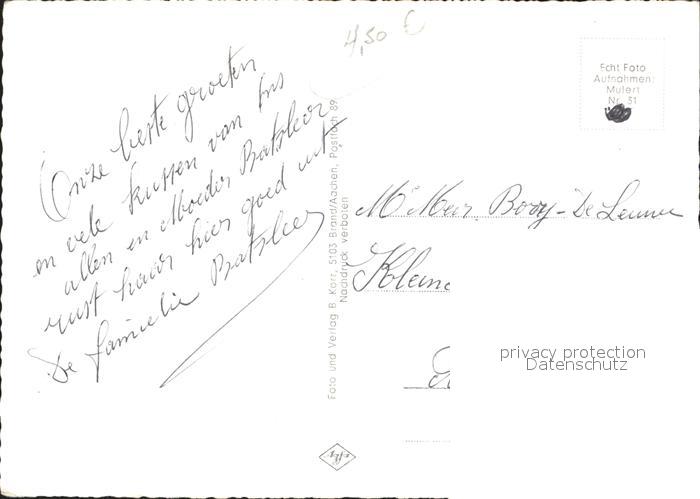 4,50 €
Echt Foto
Aufnahmen:
Mulert
Nr. 51
Onze beste groeten
en vele kussen van ons
allen en Moeder Pratsleer
rust haar hier goed uit
De familie Pratsleer
Foto und Verlag B. Korr, 5103 Brand/Aachen, Postfach 89
Nachdruck verboten
Mr Meur Booy - De Leeuw
Kleine
privacy protection
Datenschutz